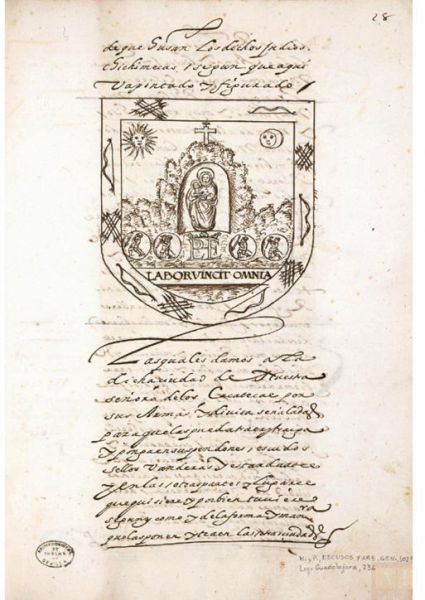 28
de que Husan Los dichos Indios
Chichimecas, segun que aqui
Va pintado y figurado
LABOR VINCIT OMNIA
Las quales damos a la
dicha ciudad de Nuestra
señora de los Çacatecas por
sus Armas y divisa señalada
para que las pueda traer y traiga
y poner en sus pendones, escudos
sellos Vanderas y estandartes
y en las otras partes y lugares
que quisiere y por bien tuviere
segun y como y de la forma y maneª
que las ponen y traen las otras ciudades
ARCHIVO
DE INDIAS
SEVILLA
M. y P., ESCUDOS Y ARB. GEN., 102
Leg. Guadalajara, 236